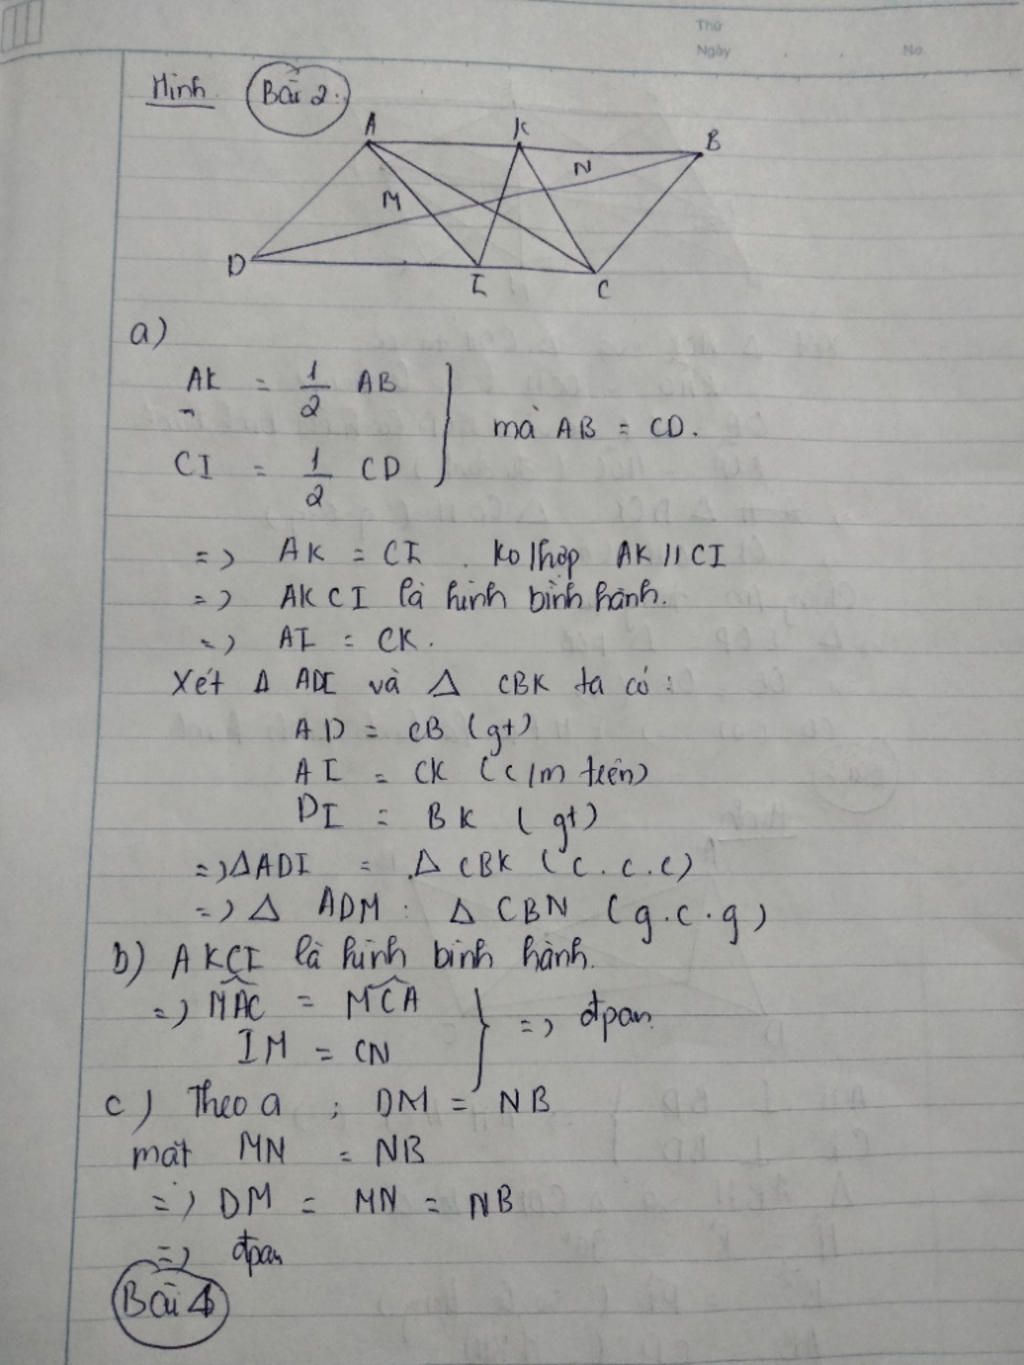 Thứ
Ngày . . No.
Hình Bài 2:
A K B
M N
D I C
a)
AK = 1/2 AB
CI = 1/2 CD } mà AB = CD.
=> AK = CI . Kơ/hợp AK // CI
=> AKCI là hình bình hành.
=> AI = CK.
Xét Δ ADI và Δ CBK ta có:
AD = CB (gt)
AI = CK (c/m trên)
DI = BK (gt)
=> ΔADI = ΔCBK (c.c.c)
=> Δ ADM : Δ CBN (g.c.g)
b) AKCI là hình bình hành.
=> MAC = MCA
IM = CN } => đpcm
c) Theo a ; DM = NB
mặt MN = NB
=> DM = MN = NB
=> đpcm
Bài 4